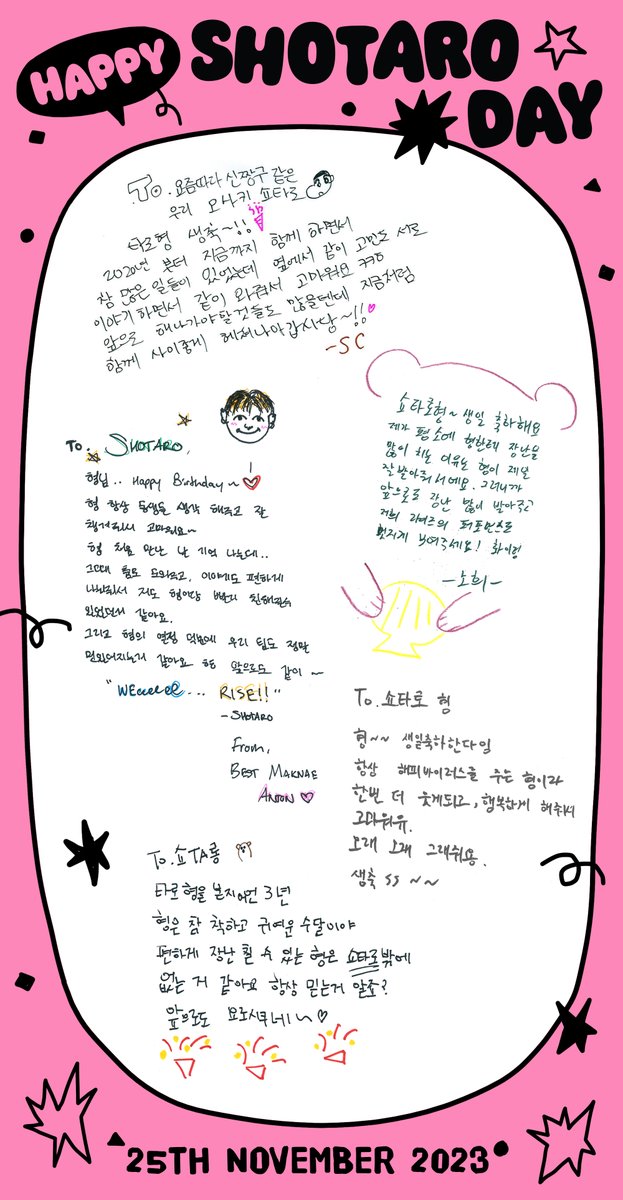 HAPPY
SHOTARO
DAY
To. 요즘따라 신짱구 같은
우리 오사키 쇼타로
타로형 생축~!!
2020년 부터 지금까지 함께 하면서
참 많은 일들이 있었는데 옆에서 같이 고민도 서로
이야기 하면서 같이 와줘서 고마워요 ㅋㅋㅎ
앞으로 해나가야할 것들도 많을텐데 지금처럼
함께 사이좋게 헤쳐나아갑시당~!!
-SC
쇼타로형~ 생일 축하해요
제가 평소에 형한테 장난을
많이 치는 이유는 형이 제일
잘 받아줘서에요. 그러니까
앞으로도 장난 많이 받아주고
저희 라이즈의 퍼포먼스도
멋지게 보여주세요! 화이팅
-소희-
To. SHOTARO,
형님.. Happy Birthday~
형 항상 동생들 생각 해주고 잘
챙겨줘서 고마워요~
형 처음 만난 날 기억 나는데..
그때 형도 도와주고, 이야기도 편하게
나눠줘서 저도 형이랑 빨리 친해질수
있었던거 같아요.
그리고 형의 열정 덕분에 우리 팀도 정말
멋있어지는거 같아요 형 앞으로도 같이 ~
"WEeeeee... RISE!!"
-SHOTARO
From,
BEST MAKNAE
ANTON
To. 쇼타로 형
형~~ 생일축하한다잉
항상 해피바이러스를 주는 형이라
한번 더 웃게되고, 행복하게 해줘서
고마워유.
오래 오래 그래줘용.
생축 ss ~~
To. 쇼TA롱
타로형을 본지 어언 3년
형은 참 착하고 귀여운 수달이야
편하게 장난 칠 수 있는 형은 쇼타로밖에
없는 거 같아요 항상 믿는거 알죠?
앞으로도 요로시쿠네~
25TH NOVEMBER 2023